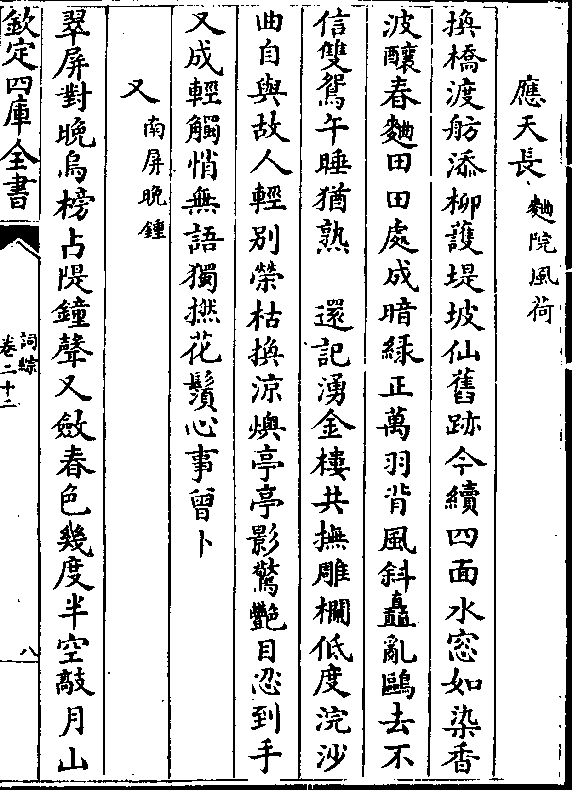 應天長 麯院風荷
換橋渡舫添柳護堤坡仙舊跡今續四面水窓如染香
波釀春麯田田處成暗緑正萬羽背風斜矗亂鷗去不
信雙鴛午睡猶熟　還記湧金樓共撫雕欄低度浣沙
曲自與故人輕别榮枯換涼燠亭亭影驚艷目忍到手
又成輕觸悄無語獨撚花鬚心事曾卜
又 南屏晚鐘
翠屏對晚烏榜占隄鐘聲又斂春色幾度半空敲月山
欽定四庫全書
詞綜
卷二十二
八